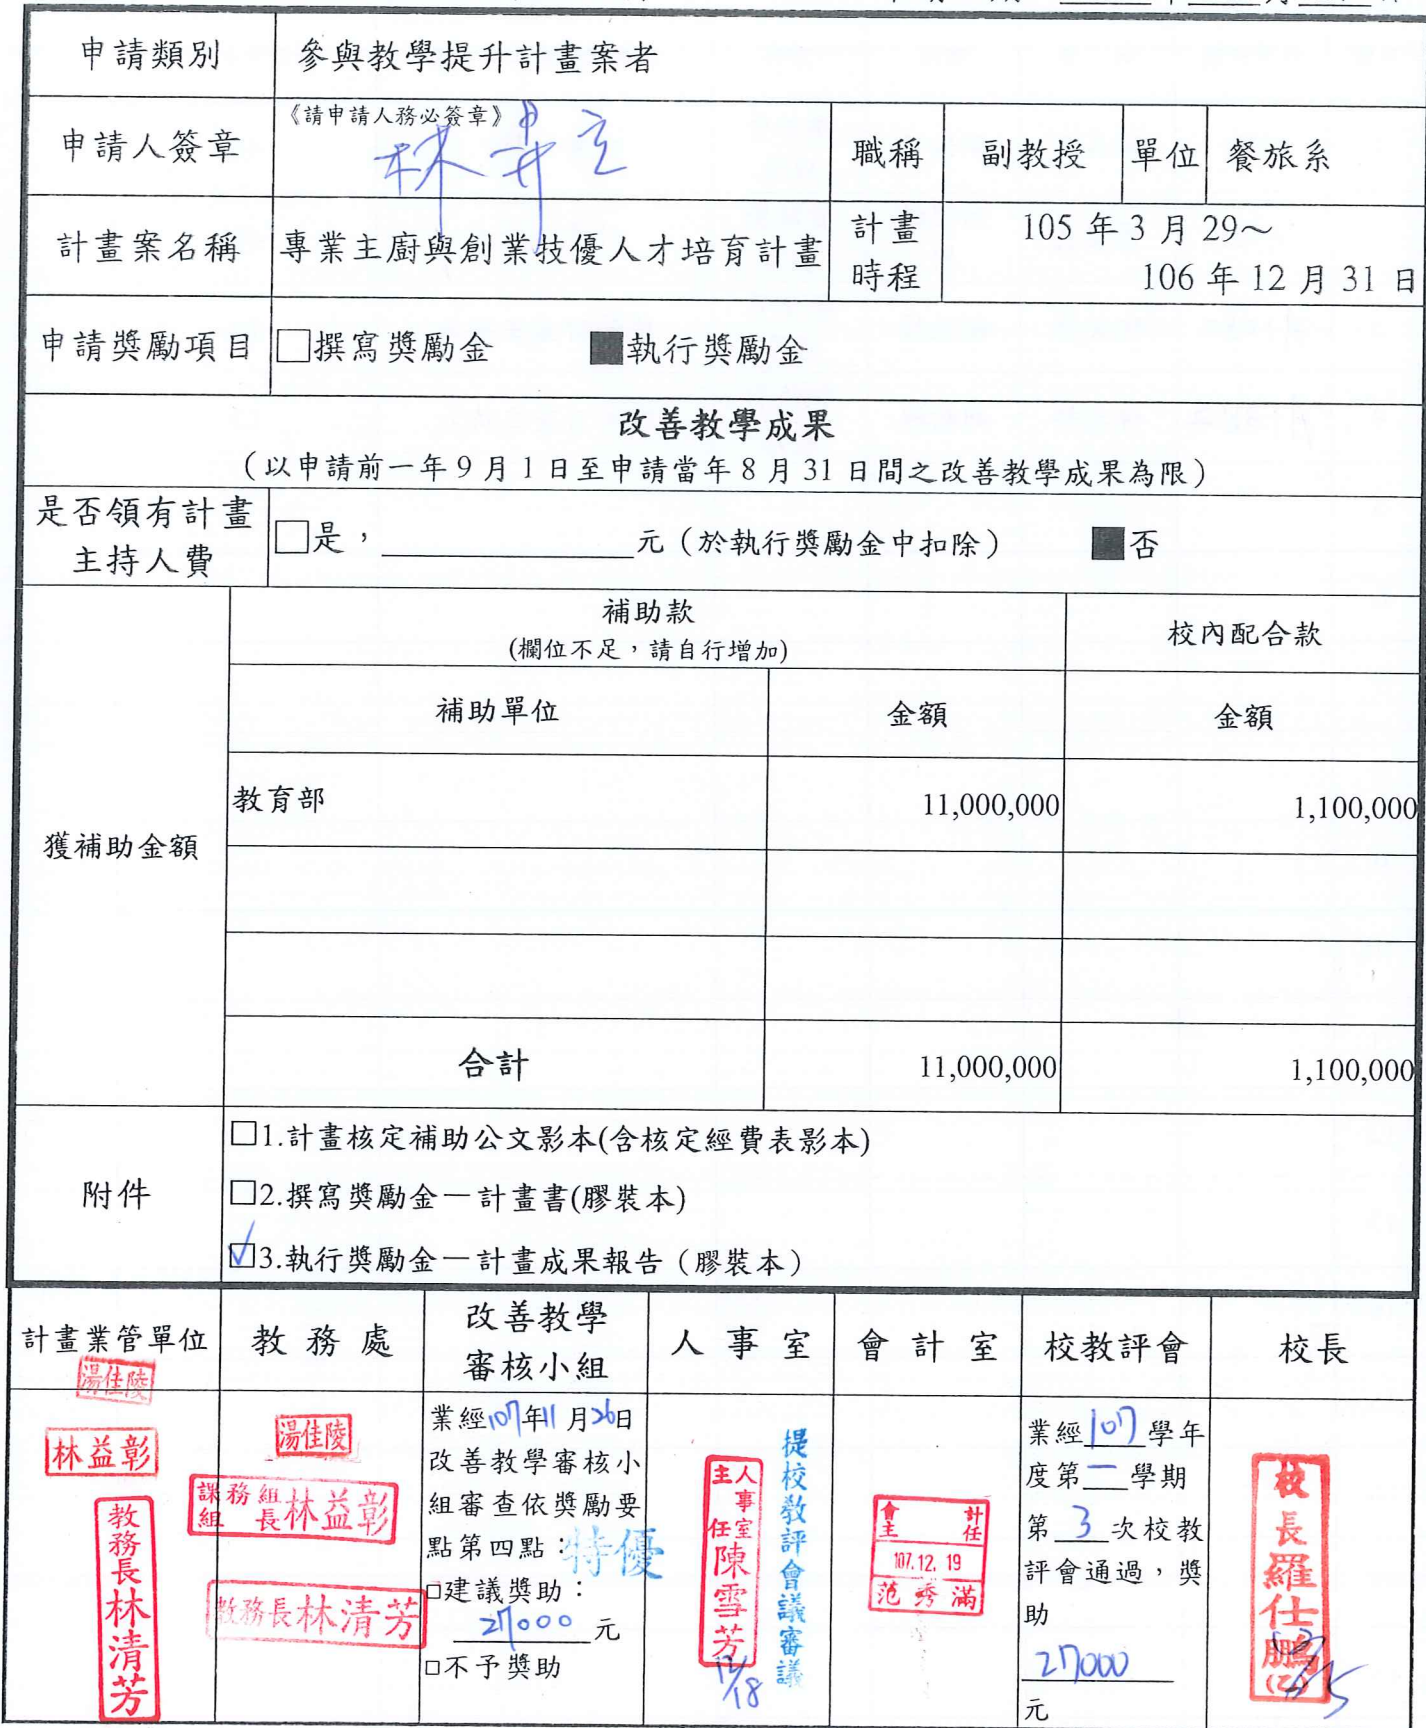 申請類別
參與教學提升計畫案者
申請人簽章
《請申請人務必簽章》
職稱
副教授
單位
餐旅系
計畫案名稱
專業主廚與創業技優人才培育計畫
計畫
時程
105 年 3 月 29～
106 年 12 月 31 日
申請獎勵項目
□撰寫獎勵金 ■執行獎勵金
改善教學成果
（以申請前一年 9 月 1 日至申請當年 8 月 31 日間之改善教學成果為限）
是否領有計畫
主持人費
□是，＿＿＿＿元（於執行獎勵金中扣除） ■否
獲補助金額
補助款
(欄位不足，請自行增加)
校內配合款
補助單位
金額
金額
教育部
11,000,000
1,100,000
合計
11,000,000
1,100,000
附件
□1.計畫核定補助公文影本(含核定經費表影本)
□2.撰寫獎勵金－計畫書(膠裝本)
☑3.執行獎勵金－計畫成果報告（膠裝本）
計畫業管單位
教務處
改善教學
審核小組
人事室
會計室
校教評會
校長
湯佳陵
林益彰
教務長林清芳
湯佳陵
課務組組長林益彰
教務長林清芳
業經107年11月26日
改善教學審核小
組審查依獎勵要
點第四點：特優
□建議獎助：
27000元
□不予獎助
人事室主任陳雪芳
12/18
提校教評會議審議
會計主任
107.12.19
范秀滿
業經107學年
度第一學期
第3次校教
評會通過，獎
助
27000
元
校長羅仕鵬(乙)